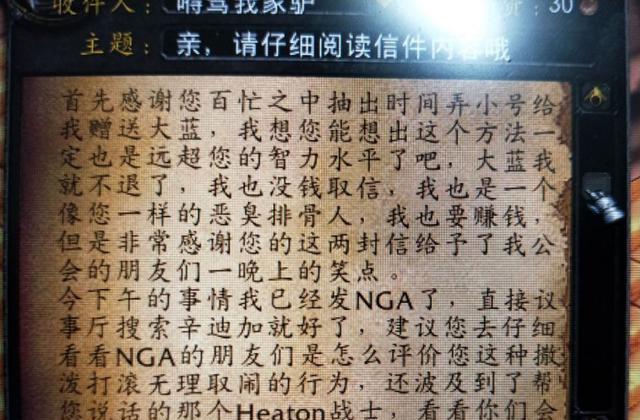 收件人：嘚驾我家驴 30
主题：亲，请仔细阅读信件内容哦
首先感谢您百忙之中抽出时间弄小号给
我赠送大蓝，我想您能想出这个方法一
定也是远超您的智力水平了吧，大蓝我
就不退了，我也没钱取信，我也是一个
像您一样的恶臭排骨人，我也要赚钱，
但是非常感谢您的这两封信给予了我公
会的朋友们一晚上的笑点。
今下午的事情我已经发NGA了，直接议
事厅搜索辛迪加就好了，建议您去仔细
看看NGA的朋友们是怎么评价您这种撒
泼打滚无理取闹的行为，还波及到了帮
您说话的那个Heaton战士，看看你们会